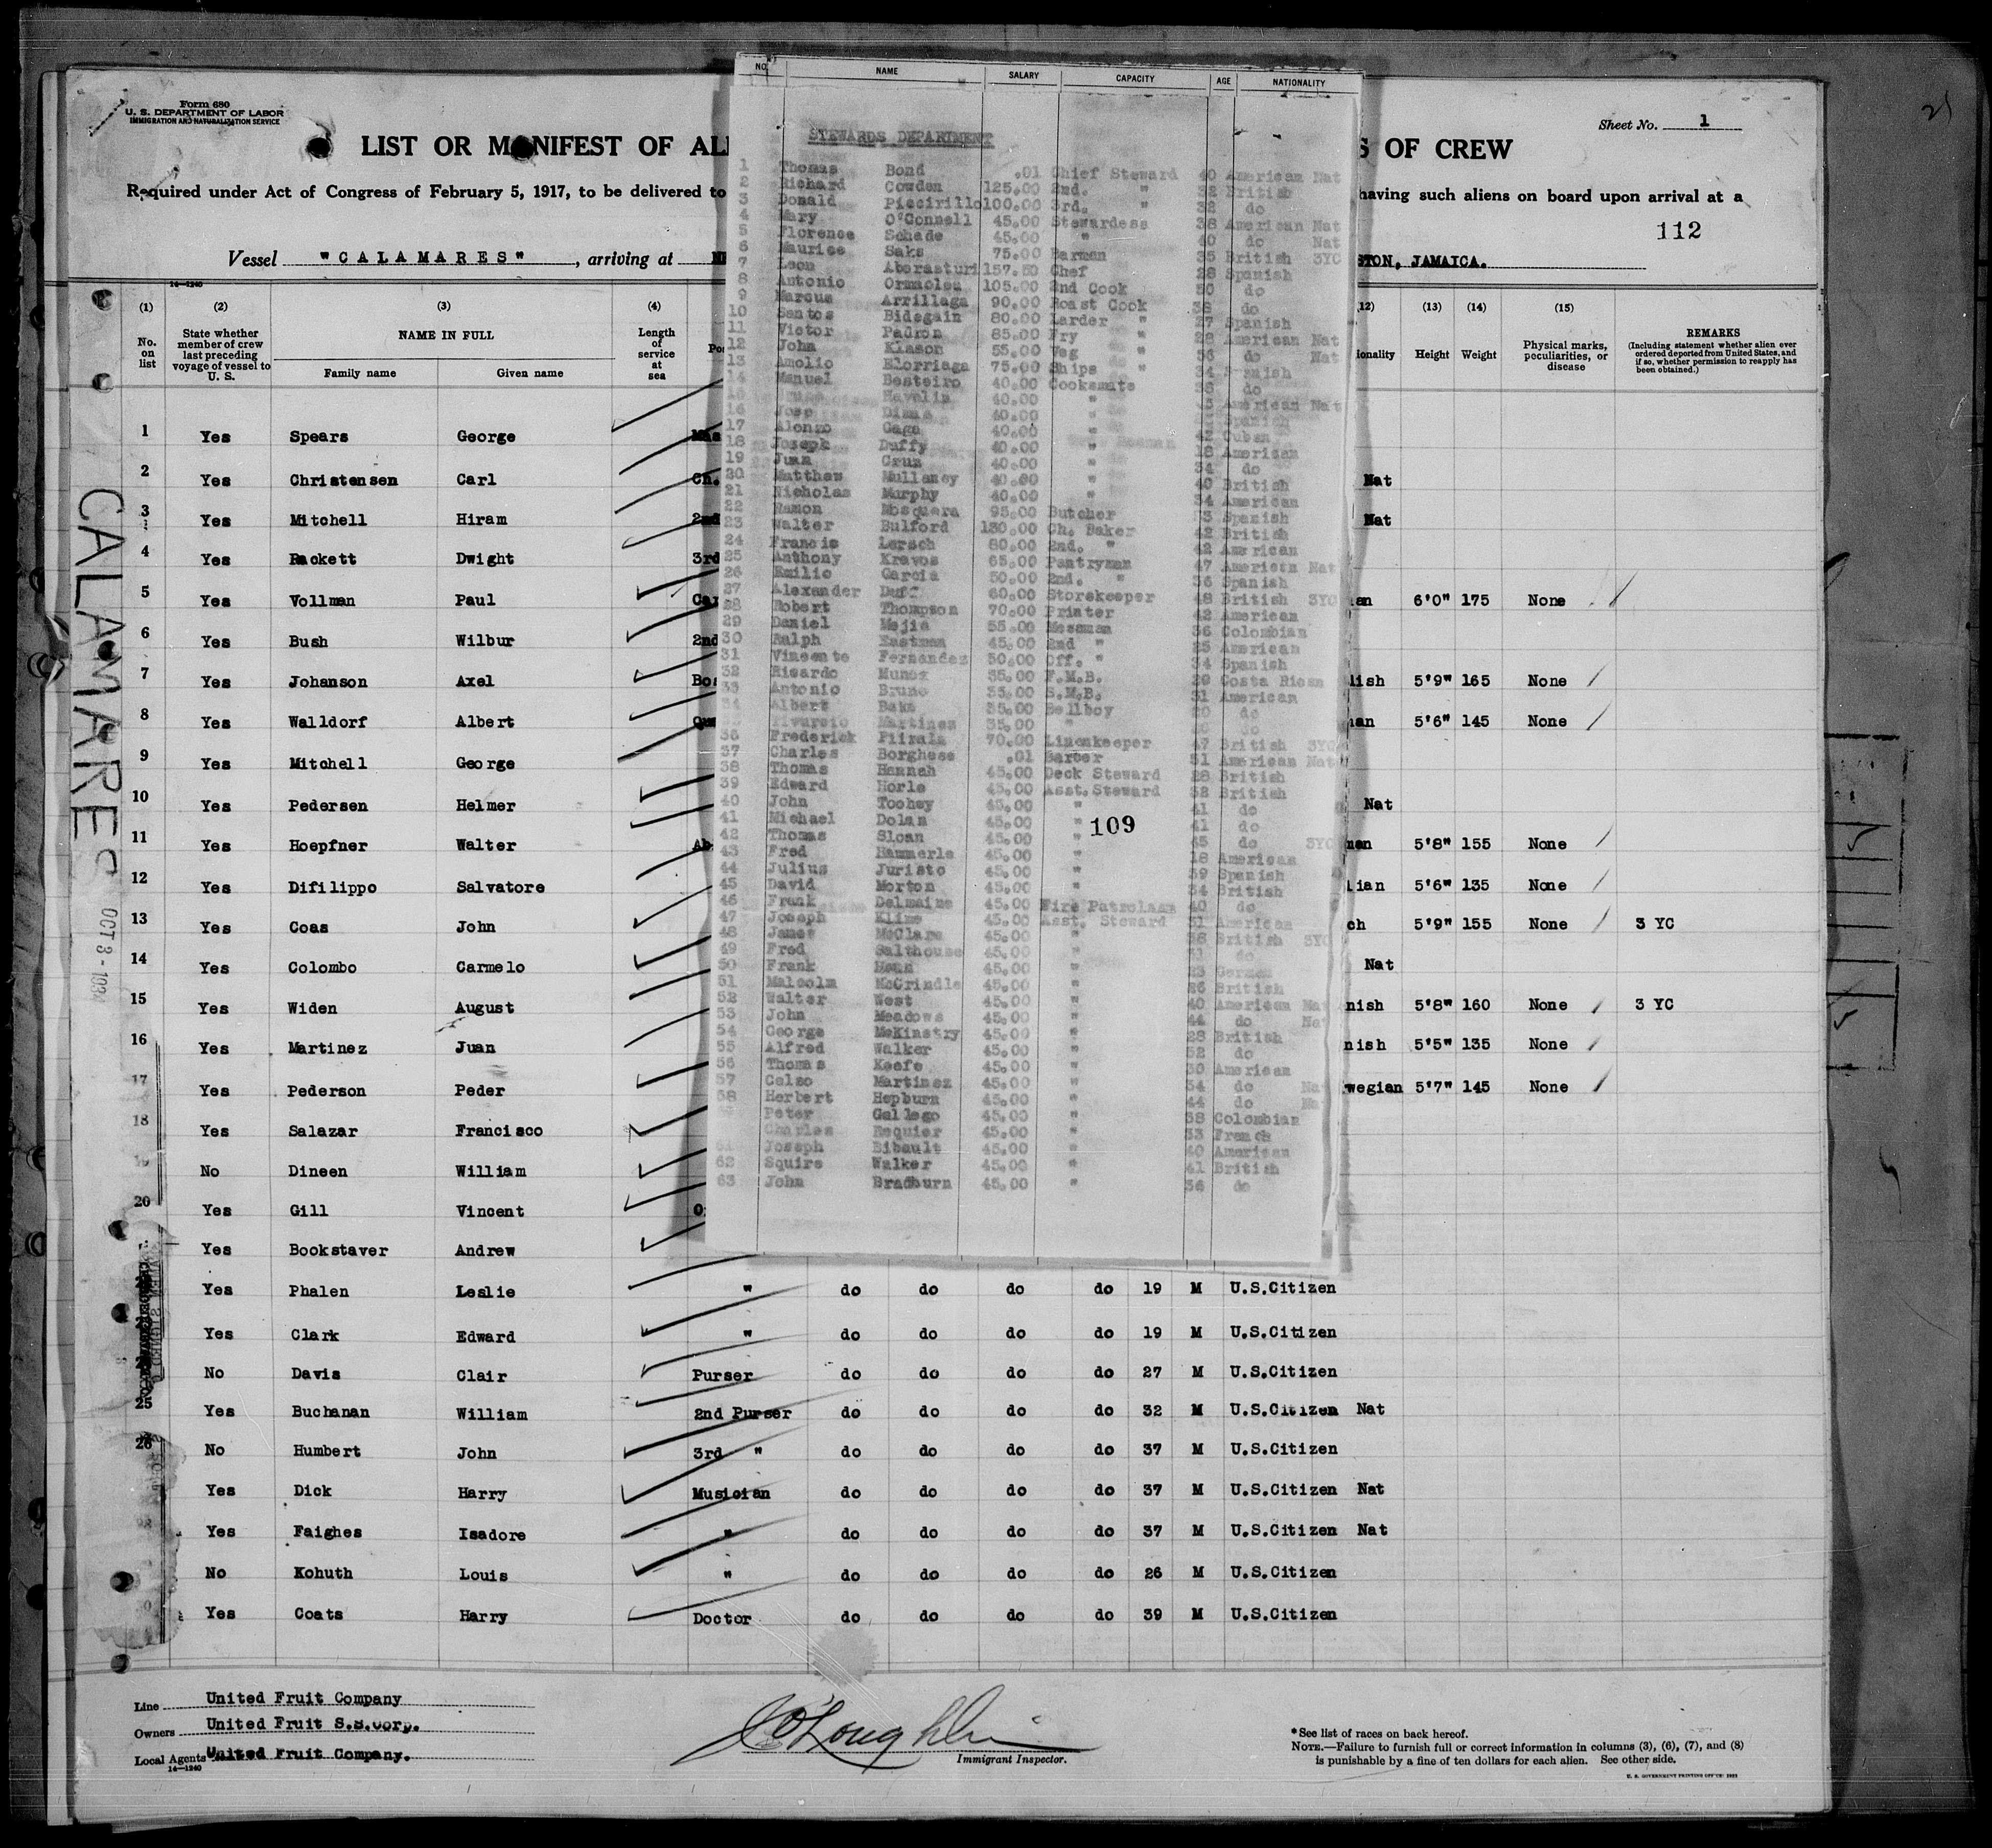 Form 680
U. S. DEPARTMENT OF LABOR
IMMIGRATION AND NATURALIZATION SERVICE
LIST OR MANIFEST OF AL
S OF CREW
Sheet No. 1
Required under Act of Congress of February 5, 1917, to be delivered to
having such aliens on board upon arrival at a
112
Vessel "CALAMARES", arriving at
STON, JAMAICA.
14—1240
(1) (2) (3) (4)
No. on list
State whether member of crew last preceding voyage of vessel to U. S.
NAME IN FULL
Family name Given name
Length of service at sea
12) (13) (14) (15)
ionality Height Weight
Physical marks, peculiarities, or disease
REMARKS
(Including statement whether alien ever ordered deported from United States, and if so, whether permission to reapply has been obtained.)
1 Yes Spears George
2 Yes Christensen Carl Ch. Nat
3 Yes Mitchell Hiram 2nd Nat
4 Yes Rackett Dwight 3rd
5 Yes Vollman Paul Car an 6'0" 175 None
6 Yes Bush Wilbur 2nd
7 Yes Johanson Axel Bo lish 5'9" 165 None
8 Yes Walldorf Albert Qu an 5'6" 145 None
9 Yes Mitchell George
10 Yes Pedersen Helmer Nat
11 Yes Hoepfner Walter Ab man 5'8" 155 None
12 Yes Difilippo Salvatore ian 5'6" 135 None
13 Yes Coas John ch 5'9" 155 None 3 YC
14 Yes Colombo Carmelo Nat
15 Yes Widen August nish 5'8" 160 None 3 YC
16 Yes Martinez Juan nish 5'5" 135 None
17 Yes Pederson Peder wegian 5'7" 145 None
18 Yes Salazar Francisco
No Dineen William
20 Yes Gill Vincent
Yes Bookstaver Andrew
Yes Phalen Leslie " do do do do 19 M U.S.Citizen
Yes Clark Edward " do do do do 19 M U.S.Citizen
No Davis Clair Purser do do do do 27 M U.S.Citizen
25 Yes Buchanan William 2nd Purser do do do do 32 M U.S.Citizen Nat
26 No Humbert John 3rd " do do do do 37 M U.S.Citizen
Yes Dick Harry Musician do do do do 37 M U.S.Citizen Nat
Yes Faighes Isadore " do do do do 37 M U.S.Citizen Nat
No Kohuth Louis " do do do do 26 M U.S.Citizen
Yes Coats Harry Doctor do do do do 39 M U.S.Citizen
CALAMARES
OCT 3 - 1934
NO. NAME SALARY CAPACITY AGE NATIONALITY
STEWARDS DEPARTMENT
1 Thomas Bond .01 Chief Steward 40 American Nat
2 Richard Cowden 125.00 2nd. " 32 British
3 Donald Piccirillo 100.00 3rd. " 32 do
4 Mary O'Connell 45.00 Stewardess 38 American Nat
5 Florence Schade 45.00 " 40 do Nat
6 Maurice Saks 75.00 Barman 35 British 3YC
7 Leon Aberasturi 157.50 Chef 28 Spanish
8 Antonio Ormolea 105.00 2nd Cook 50 do
9 Marcus Arrillaga 90.00 Roast Cook 38 do
10 Santos Bidegain 80.00 Larder " 27 Spanish
11 Victor Padron 85.00 Fry " 28 American Nat
12 John Klason 55.00 Veg " 56 do Nat
13 Amolio Elorriaga 75.00 Ships " 34 Spanish
14 Manuel Besteiro 40.00 Cooksmate do
Havelin 40.00 " American Nat
16 Jose 40.00 " Spanish
17 Alonzo Gaga 40.00 " 42 Cuban
18 Joseph Duffy 40.00 " 18 American
19 Juan Cruz 40.00 " 34 do
20 Matthew Mullaney 40.00 " 40 British
21 Nicholas Murphy 40.00 " 34 American
22 Ramon Mosquera 95.00 Butcher Spanish
23 Walter Bulford 130.00 Ch. Baker 42 British
24 Francis Lersch 80.00 2nd. " 42 American
25 Anthony Kravos 65.00 Pantryman 47 American Nat
26 Emilio Garcia 50.00 2nd. " 36 Spanish
27 Alexander Duff 60.00 Storekeeper 48 British 3YC
28 Robert Thompson 70.00 Printer 42 American
29 Daniel Mejia 55.00 Messman 36 Colombian
30 Ralph Eastman 45.00 2nd " 25 American
31 Vincente Fernandez 50.00 Off. " 34 Spanish
32 Ricardo Munoz 35.00 F.M.B. 20 Costa Rican
33 Antonio Bruno 35.00 S.M.B. 31 American
34 Albert Baks 35.00 Bellboy 20 do
Martinez 35.00 " do
36 Frederick Piirala 70.00 Linenkeeper 47 British 3YC
37 Charles Borghese .01 Barber 51 American Nat
38 Thomas Hannah 45.00 Deck Steward 28 British
39 Edward Horle 45.00 Asst.Steward 32 British
40 John Toohey 45.00 " 41 do
41 Michael Dolan 45.00 " 41 do
109
42 Thomas Sloan 45.00 " 45 do 3YC
43 Fred Hammerle 45.00 " 18 American
44 Julius Juristo 45.00 " 39 Spanish
45 David Morton 45.00 " 34 British
46 Frank Delmaine 45.00 Fire Patrolman 40 do
47 Joseph Kline 45.00 Asst. Steward 31 American
48 James McClare 45.00 " 36 British 3YC
49 Fred Salthouse 45.00 " 31 do
50 Frank 45.00 " 23 German
51 Malcolm McCrindle 45.00 " 26 British
52 Walter West 45.00 " 40 American Nat
53 John Meadows 45.00 " 44 do Nat
54 George McKinstry 45.00 " 28 British
55 Alfred Walker 45.00 " 52 do
56 Thomas Keefe 45.00 " 30 American
57 Celso Martinez 45.00 " 34 do Nat
58 Herbert Hepburn 45.00 " 44 do Nat
Peter Gallego 45.00 " 38 Colombian
Charles Esquier 45.00 " 33 French
61 Joseph Bibault 45.00 " 40 American
62 Squire Walker 45.00 " 41 British
63 John Bradburn 45.00 " 36 do
Line United Fruit Company
Owners United Fruit S.S.Corp.
Local Agents United Fruit Company.
14—1240
O'Loughlin
Immigrant Inspector.
*See list of races on back hereof.
NOTE.—Failure to furnish full or correct information in columns (3), (6), (7), and (8)
is punishable by a fine of ten dollars for each alien. See other side.
U. S. GOVERNMENT PRINTING OFFICE: 1933